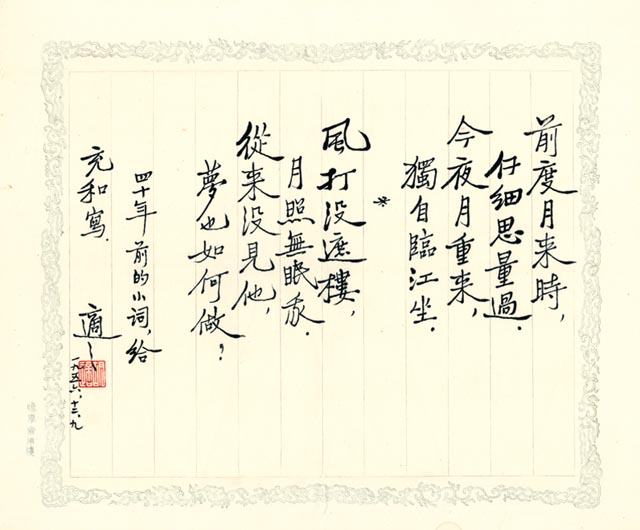 前度月来時，
仔細思量過．
今夜月重来，
獨自臨江坐．
*
風打没遮樓，
月照無眠我．
從来没見他，
夢也如何做？
四十年前的小词，給
充和寫．
適之
一九五六，十二，九